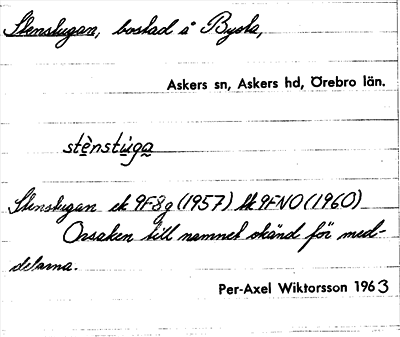 Stenstugan, bostad å Bysta,
Askers sn, Askers hd, Örebro län.
stènstu̇ga
Stenstugan ek 9F8g (1957) tk 9FNO (1960)
Orsaken till namnet okänd för med-
delarna.
Per-Axel Wiktorsson 1963